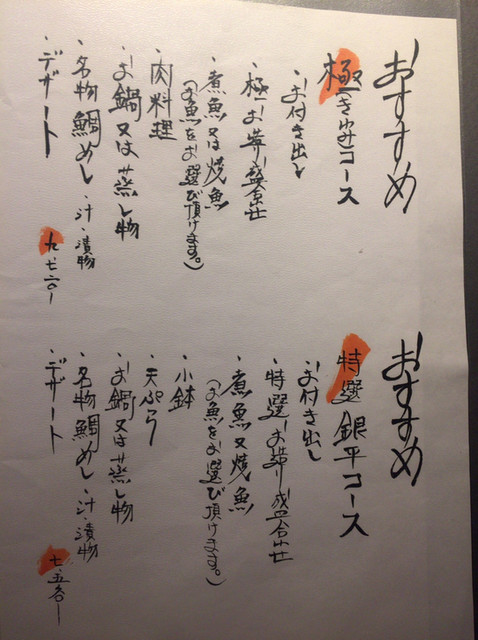 おすすめ
極(きゅうきょく)コース
・お付き出し
・極 お造り盛合せ
・煮魚又は焼魚
(お魚をお選び頂けます。)
・肉料理
・お鍋又は蒸し物
・名物鯛めし・汁・漬物
・デザート
九、七二〇ー
おすすめ
特選 銀平コース
・お付き出し
・特選 お造り盛合せ
・煮魚又焼魚
(お魚をお選び頂けます。)
・小鉢
・天ぷら
・お鍋又は蒸し物
・名物鯛めし・汁・漬物
・デザート
七、五六〇ー